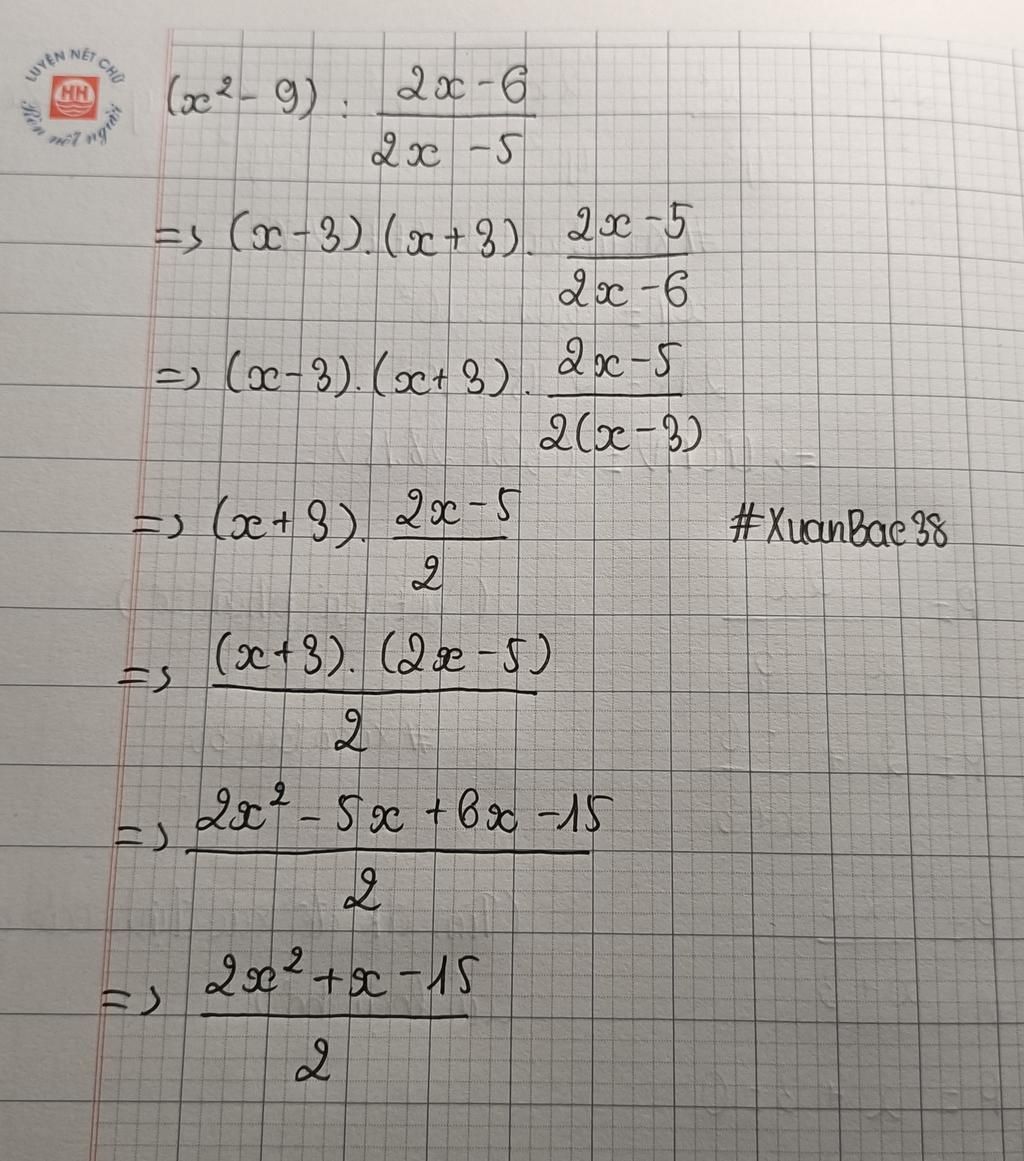 LUYỆN NÉT CHỮ
HH
Rèn nết người
(x² - 9) : \frac{2x - 6}{2x - 5}
=> (x - 3).(x + 3). \frac{2x - 5}{2x - 6}
=> (x - 3).(x + 3). \frac{2x - 5}{2(x - 3)}
=> (x + 3). \frac{2x - 5}{2}
#XuanBac38
=> \frac{(x + 3).(2x - 5)}{2}
=> \frac{2x² - 5x + 6x - 15}{2}
=> \frac{2x² + x - 15}{2}